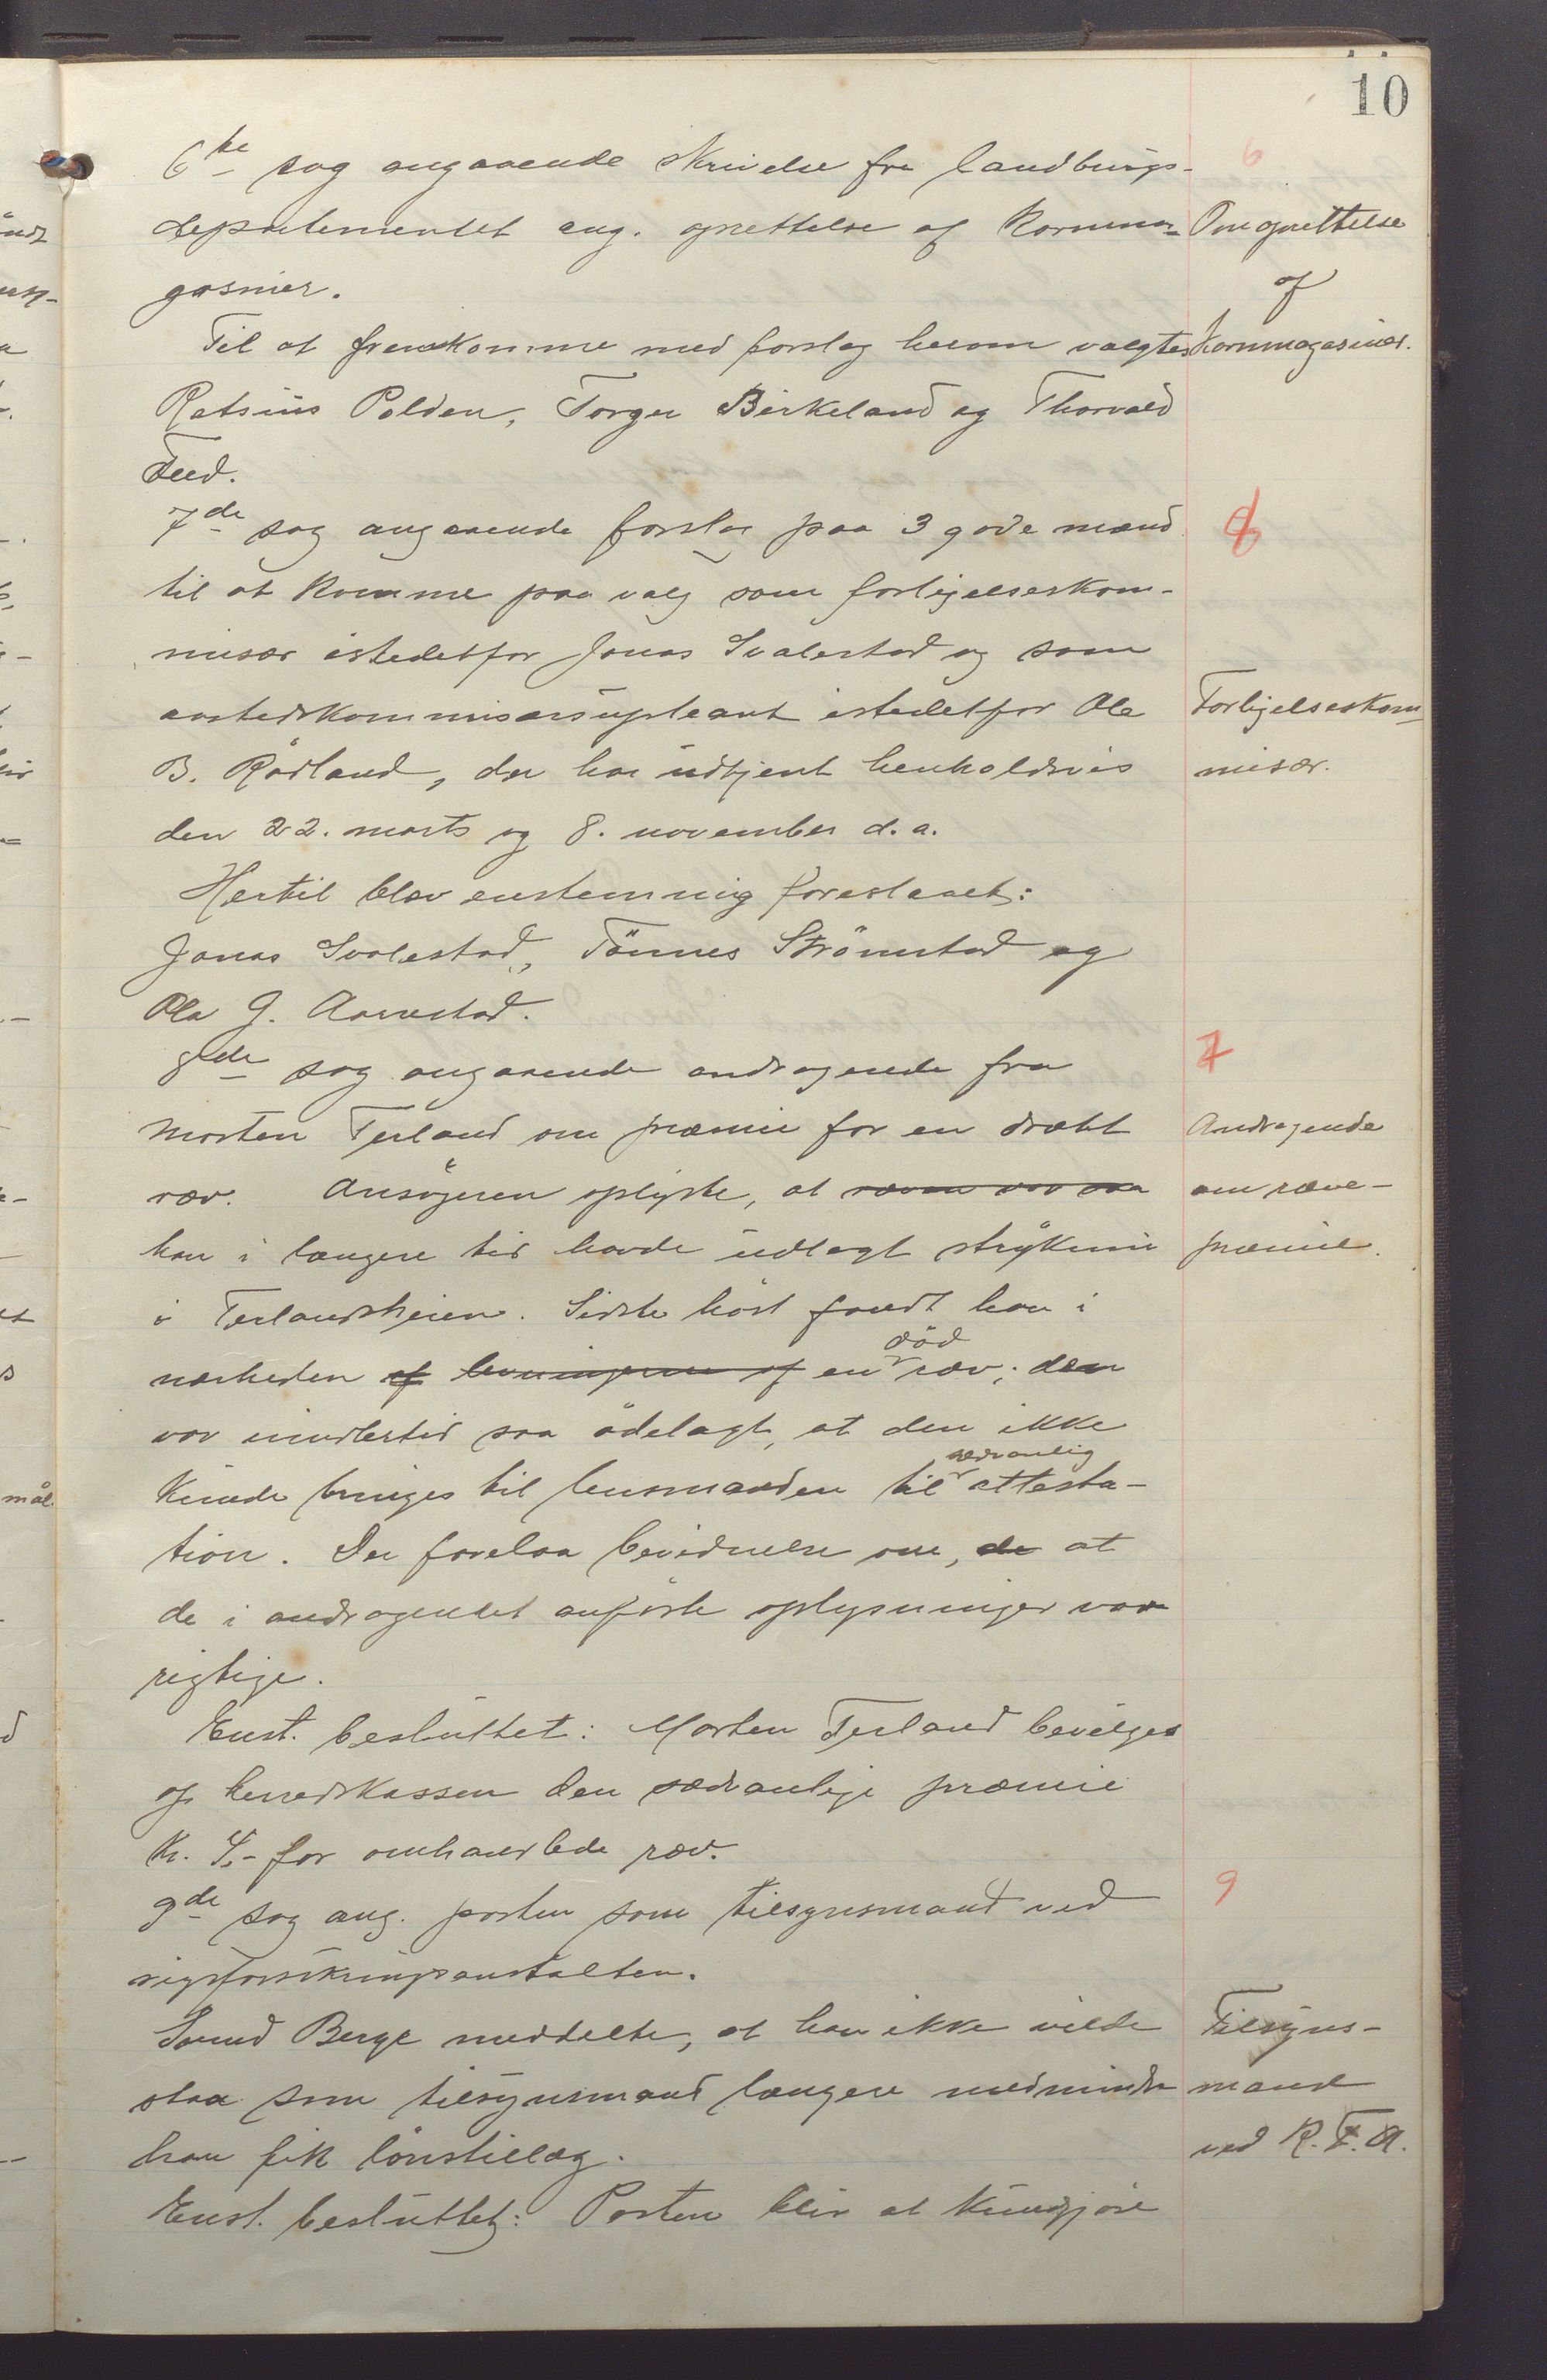 10
6te sag angaaende skrivelse fra landbrugs-
departementet ang. oprettelse af kornma-
gasiner.
Til at fremkomme med forslag herom valgtes
Rasmus Polden, Torger Birkeland og Thorvald
Tud.
7de sag angaaende forslag paa 3 gode mænd
til at komme paa valg som forligelseskom-
misær istedetfor Jonas Svalestad og som
aastedskommissærsupleant istedetfor Ole
B. Rödland, der har udtjent henholdsvis
den 22. marts og 8. november d.a.
Hertil blev enstemmig foreslaaet:
Jonas Svalestad, Tönnes Strömstad og
Ole G. Aarrestad.
8de sag angaaende andragende fra
Morten Terland om præmie for en dræbt
ræv. Ansögeren oplyste, at ræven var saa
han i længere tid havde udlagt stryknin
i Terlandsheien. Sidste höst fandt han i
nærheden af levningerne af en död ræv; den
var imidlertid saa ödelagt, at den ikke
kunde bringes til lensmanden til sedvanlig attesta-
tion. Der forelaa bevidnelse om, de at
de i andragendet anförte oplysninger var
rigtige.
Enst. besluttet: Morten Terland bevilges
af herredskassen den sædvanlige præmie
kr. 4,- for omhandlede ræv.
9de sag ang. posten som tilsynsmand ved
rigsforsikringsanstalten.
Svend Berge meddelte, at han ikke vilde
staa som tilsynsmand længere medmindre
han fik lönstillæg.
Enst. besluttet: Posten blir at kundgjöre
6
Om oprettelse
af
kornmagasiner.
8
Forligelseskom-
misær.
7
Andragende
om ræve-
præmie.
9
Tilsyns-
mand
ved R.F.A.